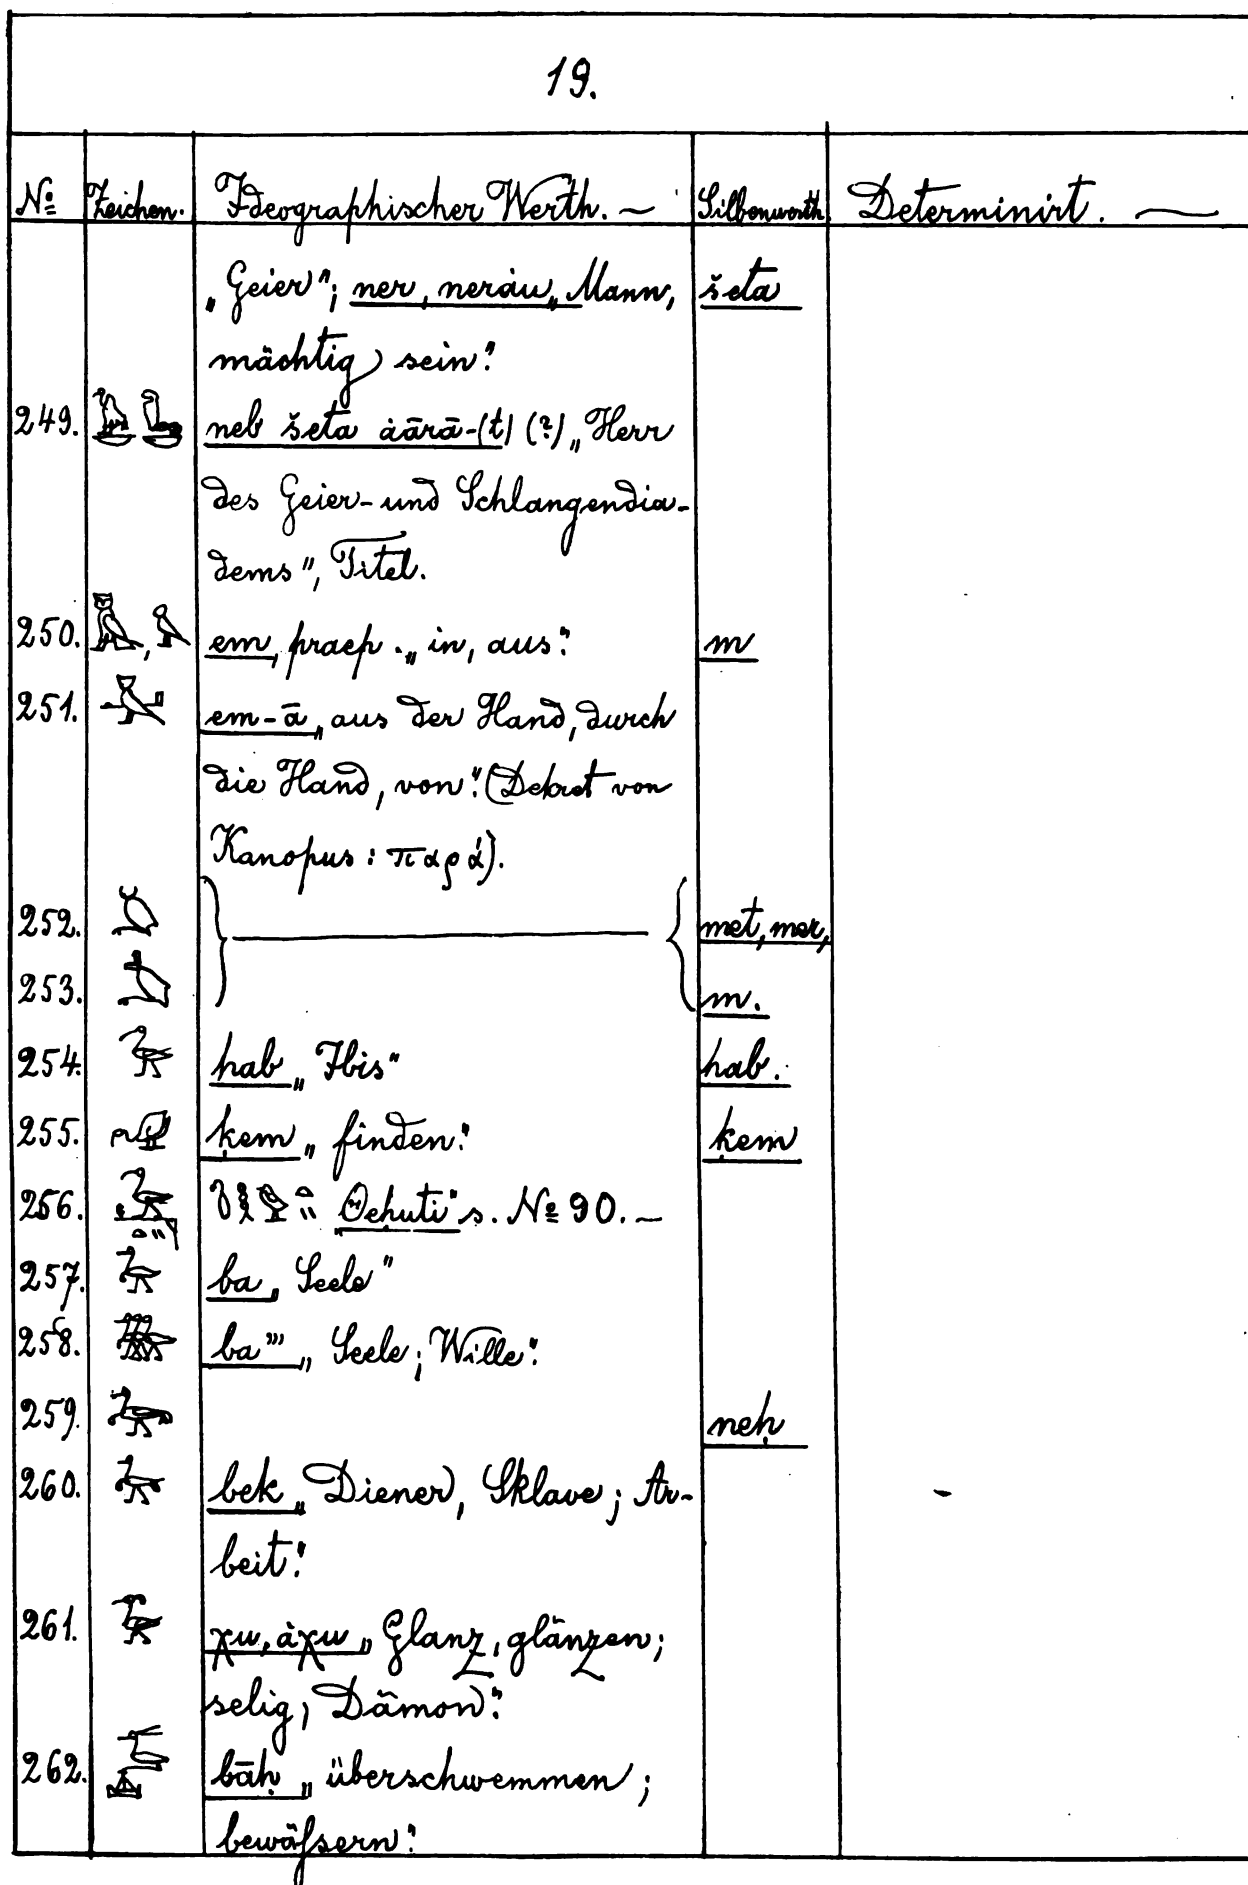 19.
№ Zeichen. Ideographischer Werth. ~ Silbenwerth Determinirt. —
„Geier"; ner, neràu „Mann, šeta
mächtig sein."
249. neb šeta àārā-(t) (?) „Herr
des Geier- und Schlangendia-
dems", Titel.
250. em, praep. „in, aus." m
251. em-ā „aus der Hand, durch
die Hand, von." (Dekret von
Kanopus: παρά).
252. met, mer,
253. m.
254. hab „Ibis" hab.
255. ḳem „finden." ḳem
256. „Θeḥuti" s. № 90. —
257. ba „Seele"
258. ba''' „Seele; Wille."
259. neḥ
260. bek „Diener, Sklave; Ar-
beit."
261. χu, àχu „Glanz, glänzen;
selig, Dämon."
262. bāḥ „überschwemmen;
bewäſsern."